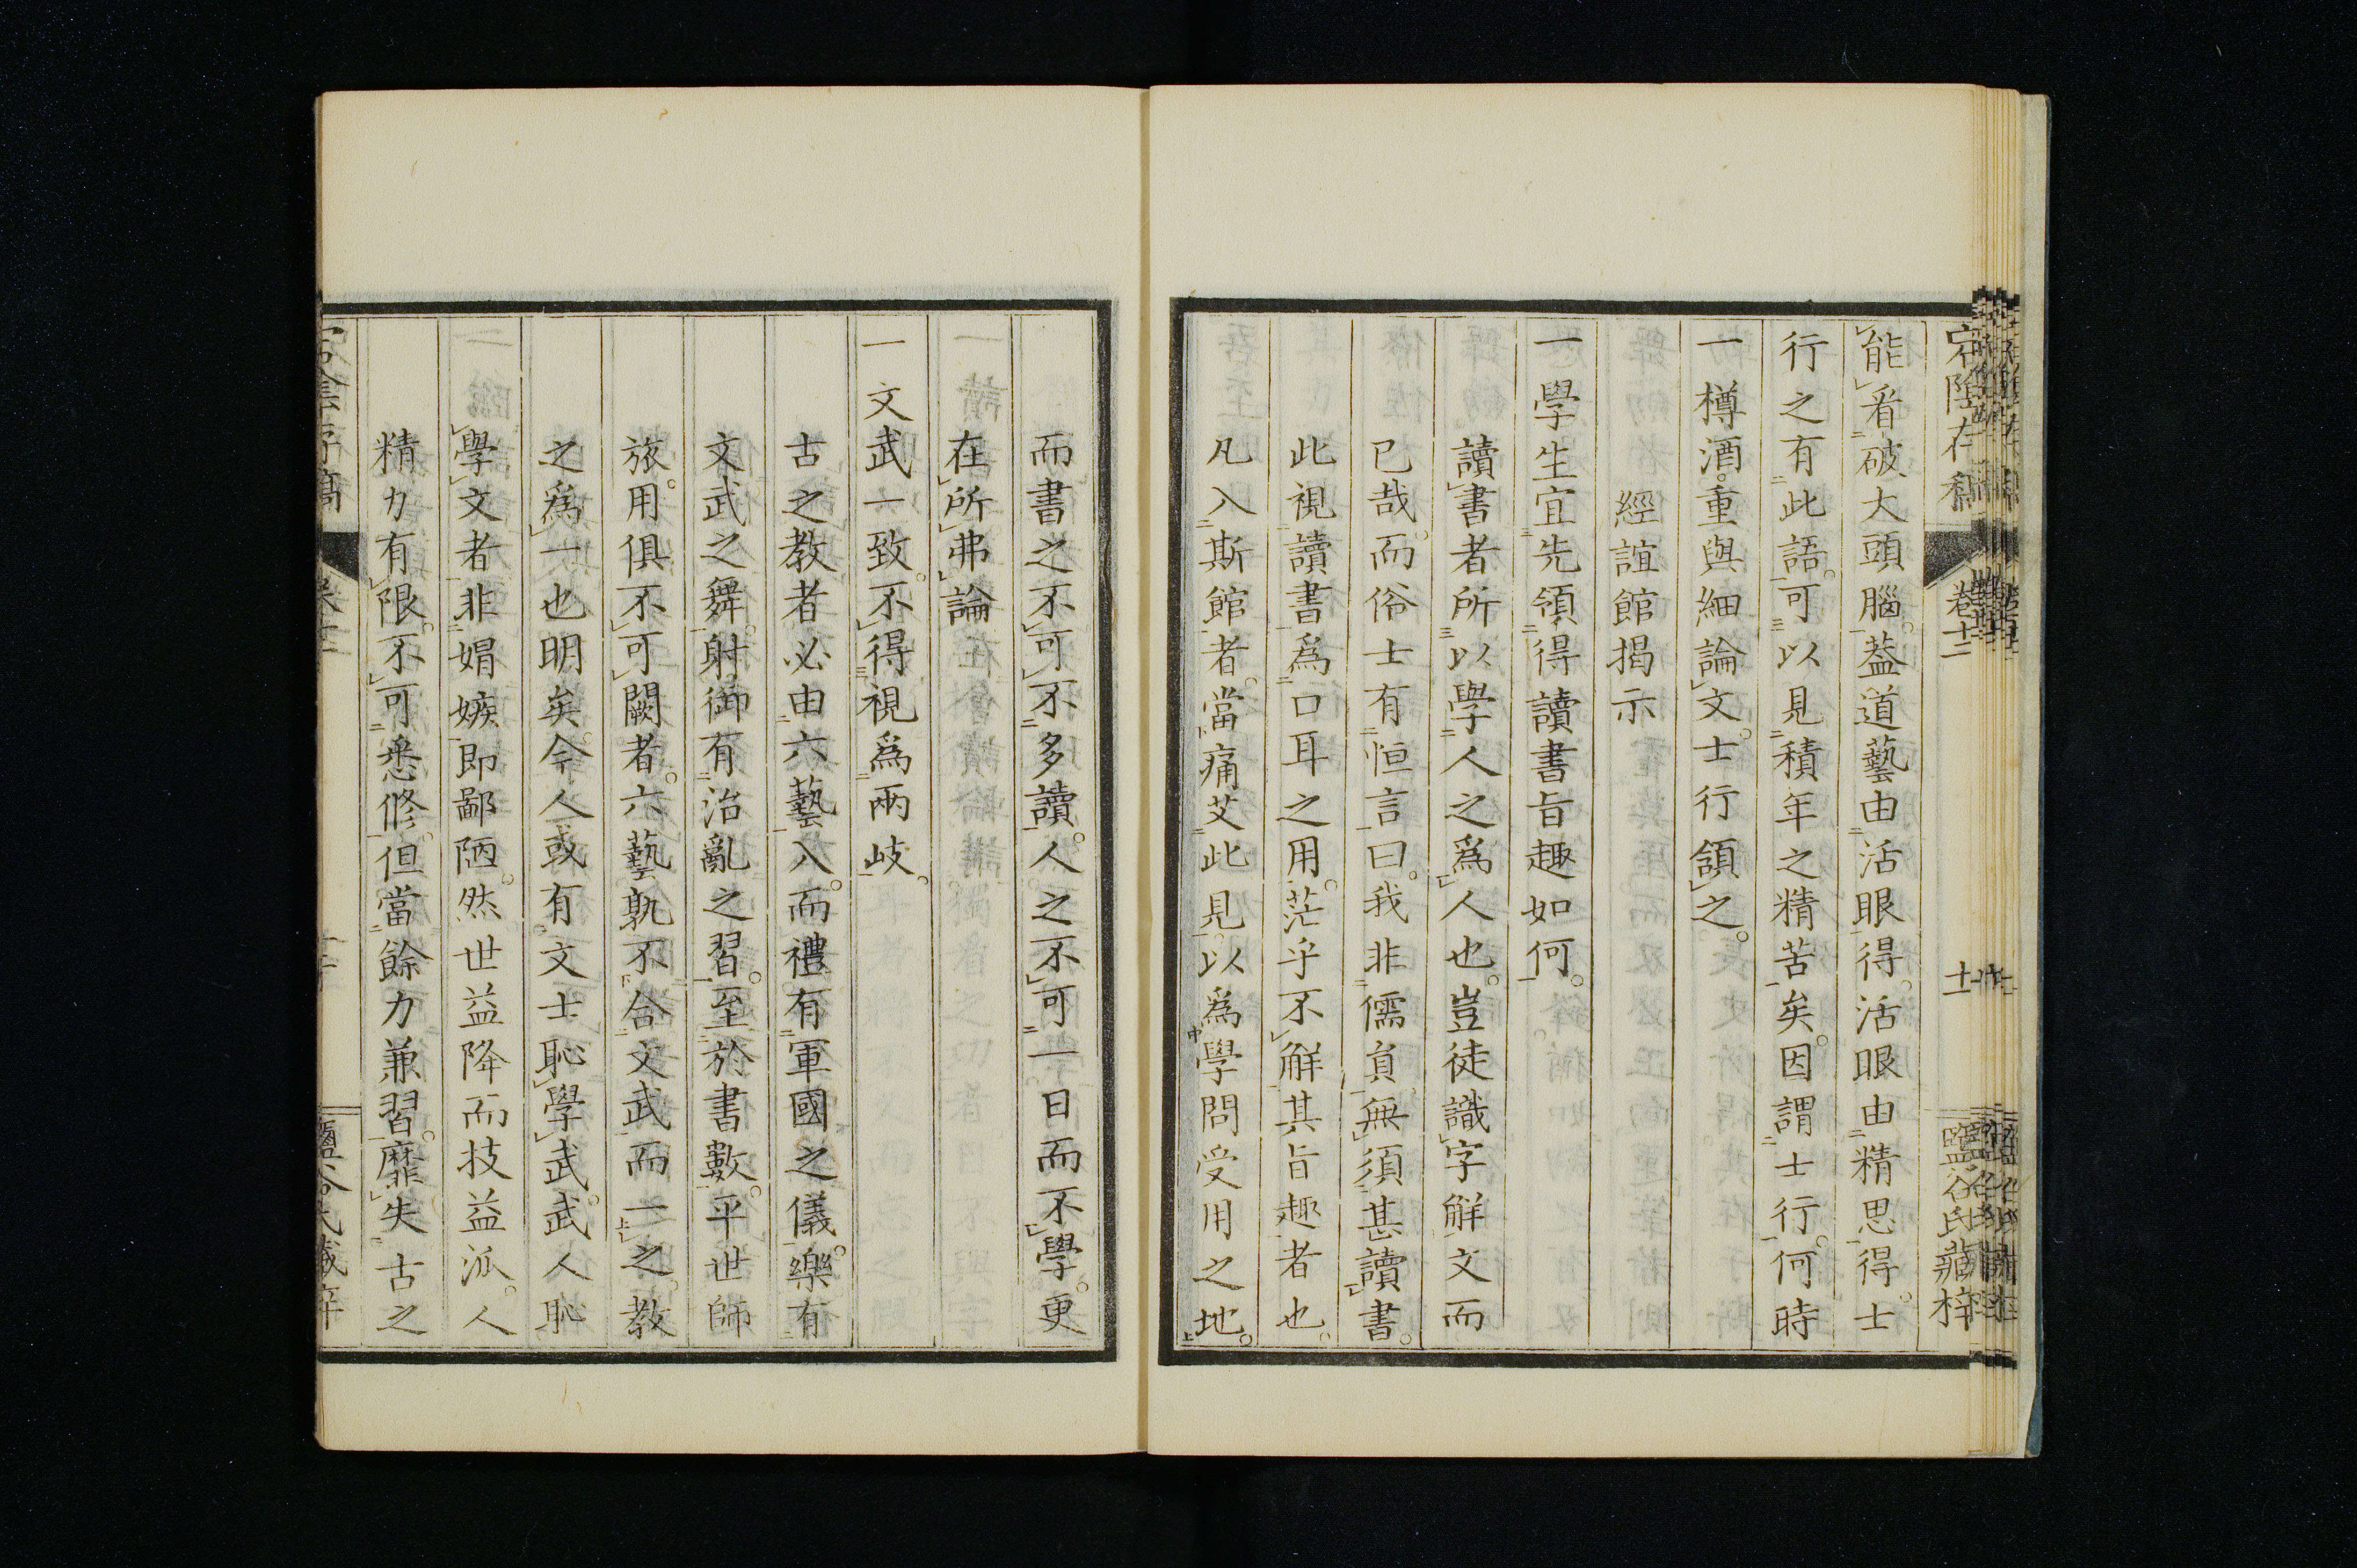 宕陰存稿
卷十二
十一
鹽谷氏藏梓
能看破大頭腦。葢道藝由活眼得。活眼由精思得。士
行之有此語。可以見積年之精苦矣。因謂士行。何時
一樽酒。重與細論文。士行頷之。
經誼館揭示
一學生宜先領得讀書旨趣如何。
讀書者所以學人之爲人也。豈徒識字解文而
已哉。而俗士有恒言曰。我非儒員。無須甚讀書。
此視讀書爲口耳之用。茫乎不解其旨趣者也。
凡入斯館者。當痛艾此見。以爲學問受用之地。
而書之不可不多讀。人之不可一日而不學。更
在所弗論
一文武一致。不得視爲兩岐。
古之教者必由六藝入。而禮有軍國之儀。樂有
文武之舞。射御有治亂之習。至於書數。平世師
旅。用俱不可闕者。六藝孰不合文武而一之。教
之爲一也明矣。今人或有文士恥學武。武人恥
學文者。非娼嫉即鄙陋。然世益降而技益派。人
精力有限。不可悉修。但當餘力兼習。靡失古之